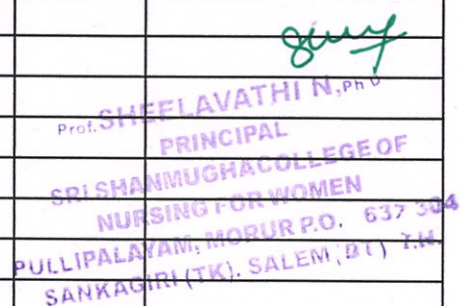 Prof. SHEELAVATHI N, Ph D
PRINCIPAL
SRI SHANMUGHA COLLEGE OF
NURSING FOR WOMEN
PULLIPALAYAM, MORUR P.O. 637 304
SANKAGIRI (TK). SALEM, (DT) T.N.